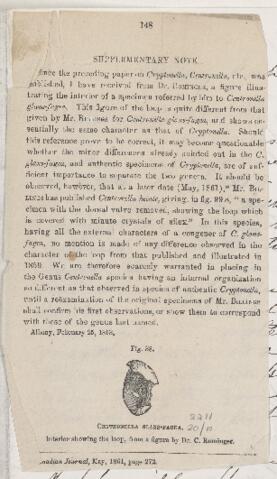 148
SUPPLEMENTARY NOTE.
Since the preceding paper on Cryptonella, Centronella, etc., was
published, I have received from Dr. ROMINGER, a figure illus-
trating the interior of a specimen referred by him to Centronella
glans-fagea. This figure of the loop is quite different from that
given by Mr. BILLINGS for Centronella glans-fagea, and shows es-
sentially the same character as that of Cryptonella. Should
this reference prove to be correct, it may become questionable
whether the minor differences already pointed out in the C.
glans-fagea, and authentic specimens of Cryptonella, are of suf-
ficient importance to separate the two genera. It should be
observed, however, that at a later date (May, 1861),* Mr. BIL-
LINGS has published Centronella hecate, giving, in fig. 99 a, "a spec-
imen with the dorsal valve removed, showing the loop which
is covered with minute crystals of silex." In this species,
having all the external characters of a congener of C. glans-
fagea, no mention is made of any difference observed in the
character of the loop from that published and illustrated in
1859. We are therefore scarcely warranted in placing in
the Genus Centronella species having an internal organization
so different as that observed in species of authentic Cryptonella,
until a reexamination of the original specimens of Mr. BILLINGS
shall confirm his first observations, or show them to correspond
with those of the genus last named.
Albany, February 25, 1863.
Fig. 28.
2211
20/11
CENTRONELLA GLANS-FAGEA.
Interior showing the loop, from a figure by Dr. C. Rominger.
Canadian Journal, May, 1861, page 272.